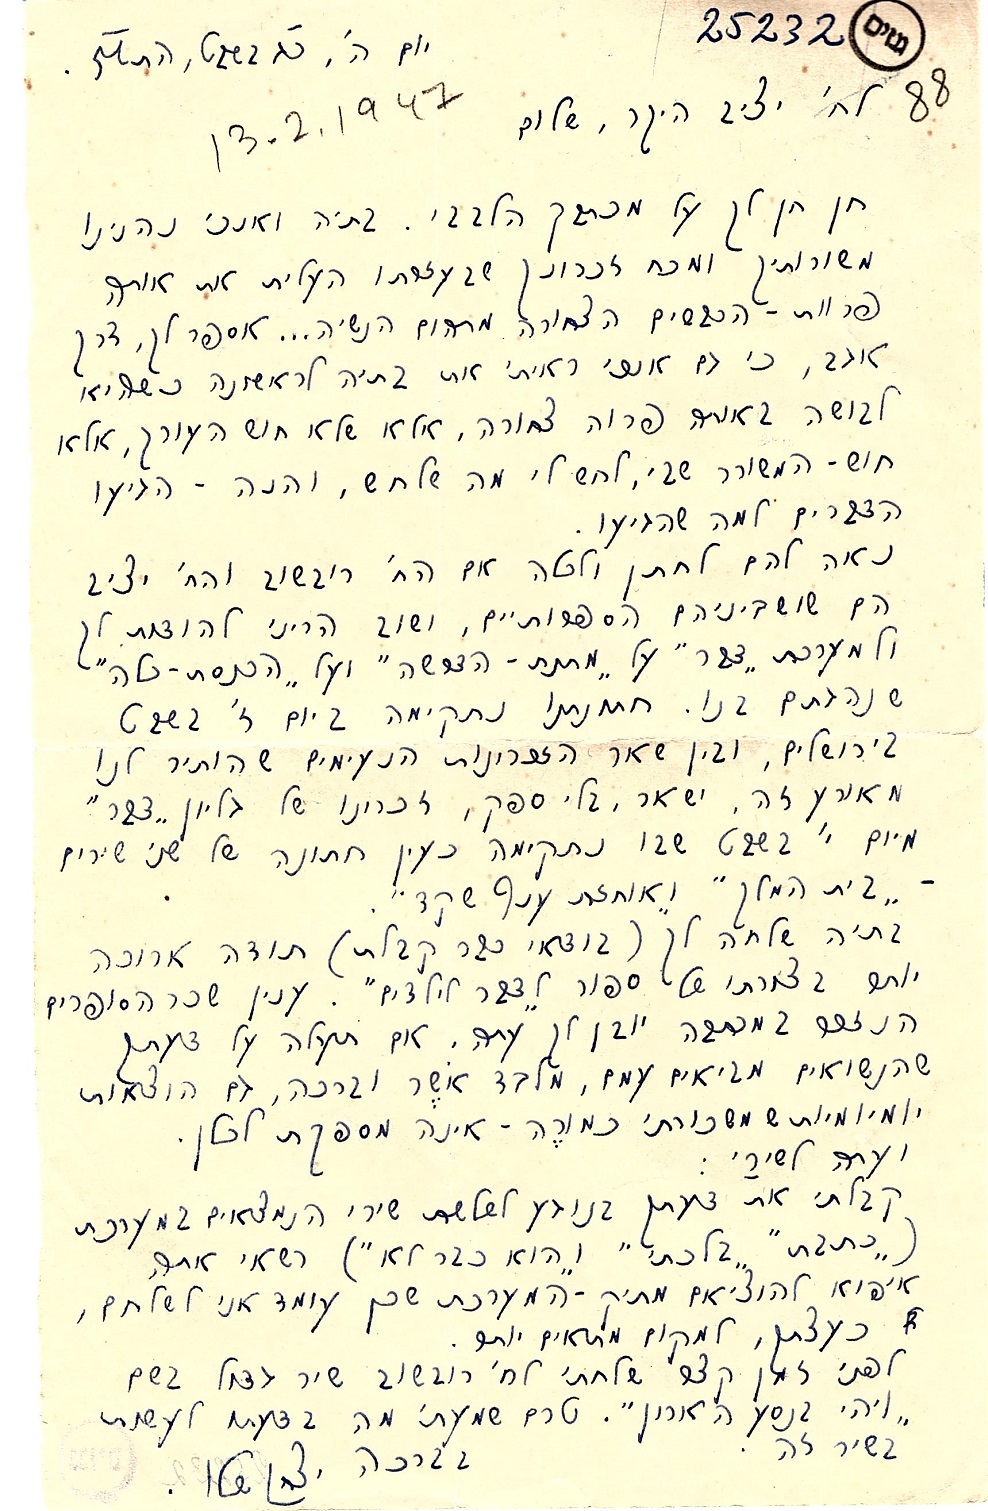 25232
גנזים
יום ה', כ"ג בשבט, התש"ז.
13.2.1947
88
לח' יציב היקר, שלום
חן חן לך על מכתבך הלבבי. בתיה ואנכי נהנינו
משורותיך ומכח זכרונך שבעזרתו העלית את אותה
פרוות-הכבשים הצחורה מתהום הנשיה... אספר לך, דרך
אגב, כי גם אנכי ראיתי את בתיה לראשונה כשהיא
לבושה באותה פרוה צחורה, אלא שלא חוש העורך, אלא
חוש-המשורר שבי, לחש לי מה שלחש, והנה - הגיעו
הדברים למה שהגיעו.
נאה להם לחתן ולכלה אם הח' רובשוב והח' יציב
הם שושביניהם הספרותיים, ושוב הריני להודות לך
ולמערכת "דבר" על "מתנת-הדרשה" ועל "הכנסת-כלה"
שנהגתם בנו. חתונתנו נתקימה ביום ז' בשבט
בירושלים, ובין שאר הזכרונות הנעימים שהותיר לנו
מאורע זה, ישאר, בלי ספק, זכרונו של גליון "דבר"
מיום י' בשבט שבו נתקימה כעין חתונה של שני שירים
- "בית המלך" ו"אוחזת ענף שקד".
בתיה שלחה לך (בודאי כבר קבלת) תודה ארוכה
יותר בצורתו של ספור ל"דבר לילדים". ענין שכר הסופרים
הנזכר במכתבה יובן לך עתה, אם תעלה על דעתך
שהנשואים מביאים עמם, מלבד אֹשֶר וברכה, גם הוצאות
יומיומיות שמשכורתי כמורֶה - אינה מספקת לכלן.
ועתה לשירַי:
קבלתי את דעתך בנוגע לשלשת שירי הנמצאים במערכת
("כתבת" "בלכתי" ו"הוא כבר לא") רשאי אתה
איפוא להוציאם מתיק-המערכת שכן עומד אני לשלחם,
כעצתך, למקום מתאים יותר.
לפני זמן קצר שלחתי לח' רובשוב שיר גדול בשם
"ויהי בנסע הארון". טרם שמעתי מה בדעתו לעשות
בשיר זה.
בברכה יצחק שלו.